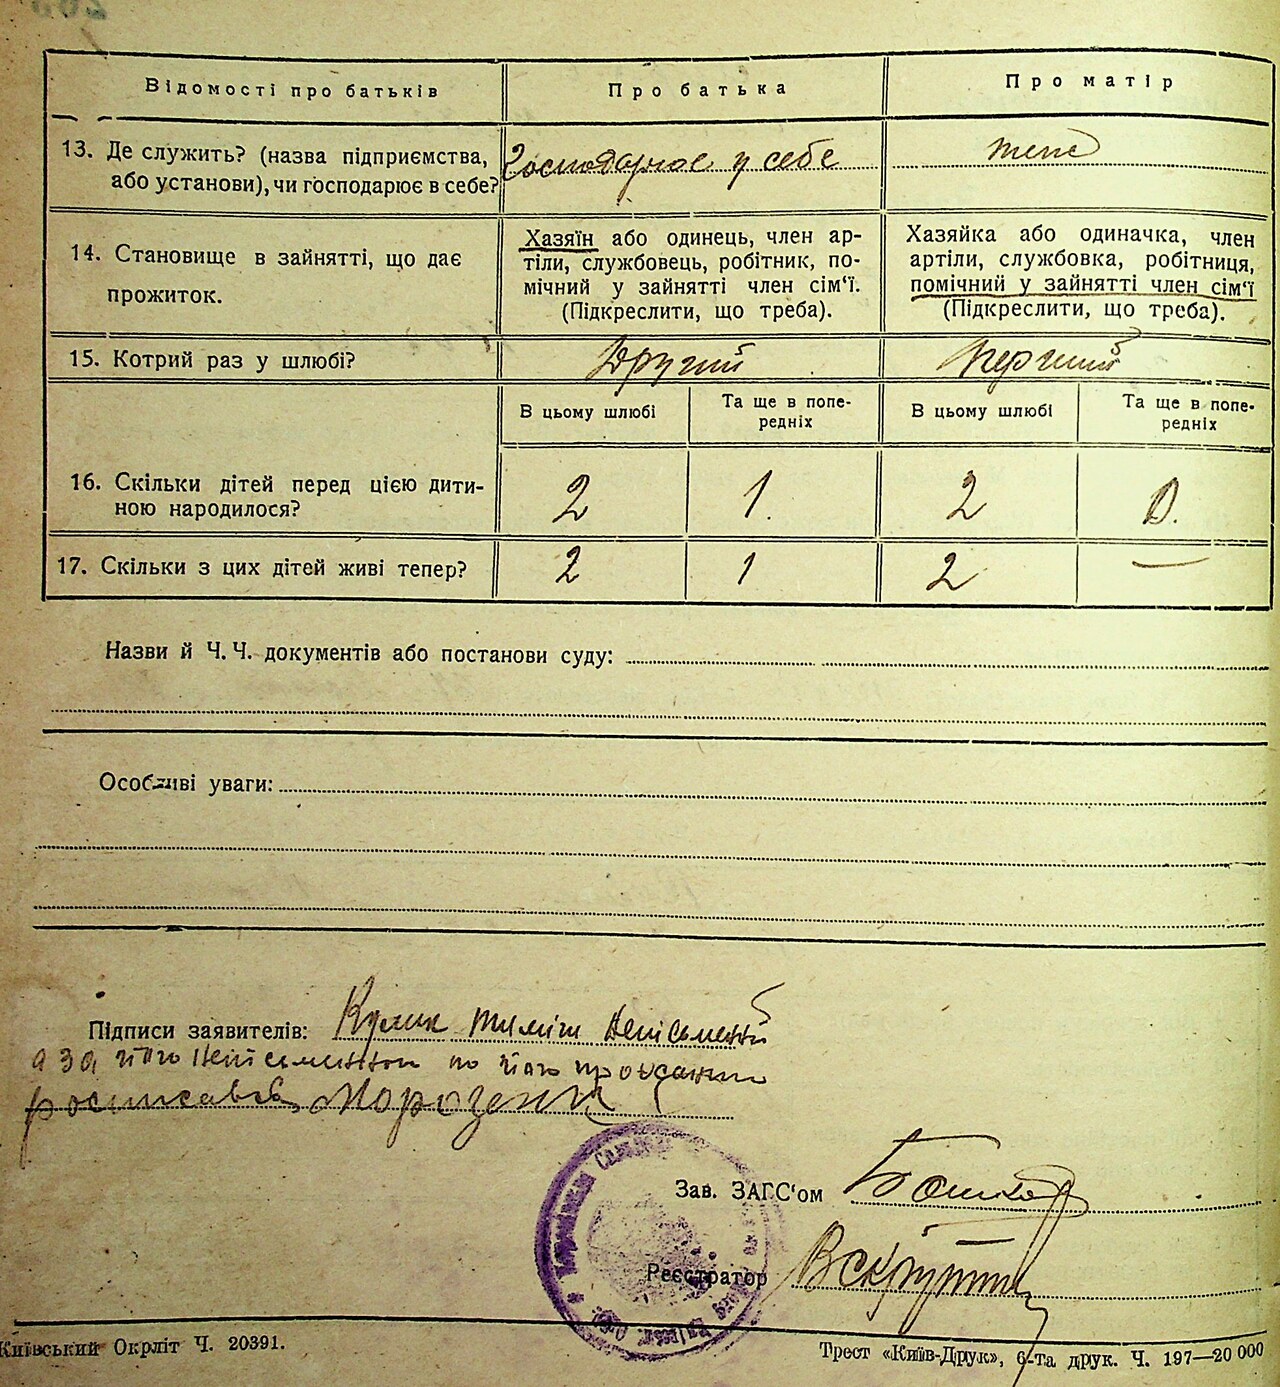 Відомості про батьків
Про батька
Про матір
13. Де служить? (назва підприємства,
або установи), чи господарює в себе?
Господарює у себе
теж
14. Становище в зайнятті, що дає
прожиток.
Хазяїн або одинець, член ар-
тіли, службовець, робітник, по-
мічний у зайнятті член сім‘ї.
(Підкреслити, що треба).
Хазяйка або одиначка, член
артіли, службовка, робітниця,
помічний у зайнятті член сім‘ї
(Підкреслити, що треба).
15. Котрий раз у шлюбі?
Другий
Перший
В цьому шлюбі
Та ще в попе-
редніх
В цьому шлюбі
Та ще в попе-
редніх
16. Скільки дітей перед цією дити-
ною народилося?
2 1. 2 0.
17. Скільки з цих дітей живі тепер?
2 1 2 —
Назви й Ч. Ч. документів або постанови суду:
Особливі уваги:
Підписи заявителів: Кулик неписьменний
а за його неписьменного по його проханню
росписався
Зав. ЗАГС‘ом
Реєстратор
Київський Окрліт Ч. 20391.
Трест «Київ-Друк», 6-та друк. Ч. 197—20 000